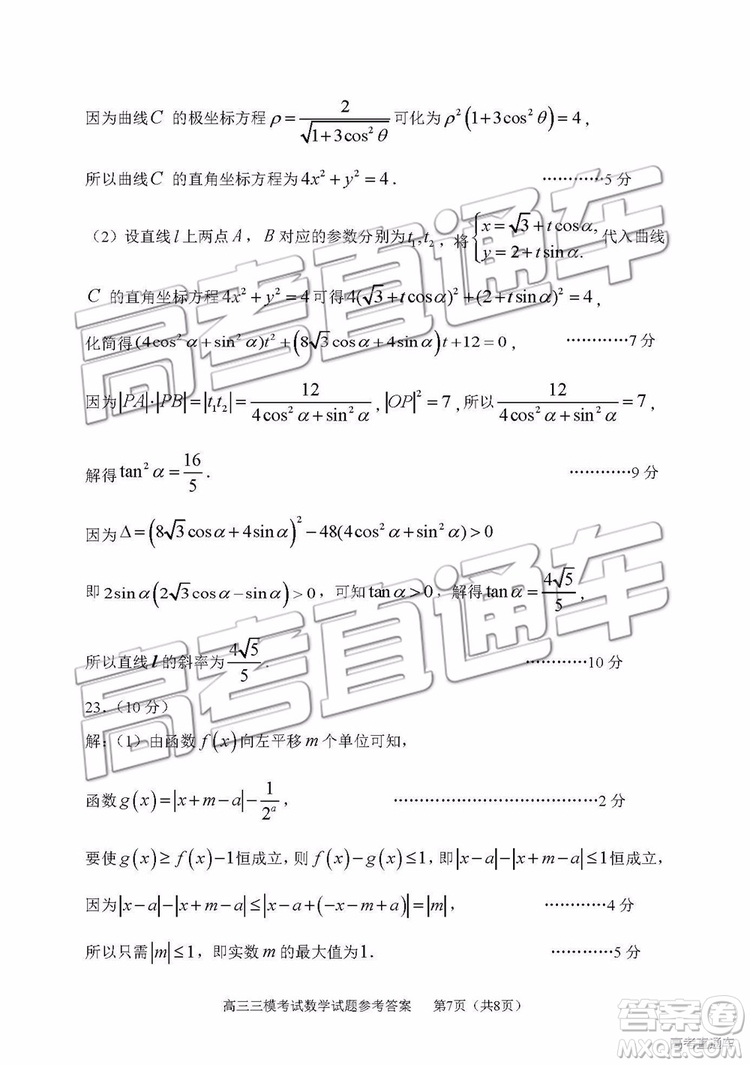 因为曲线C 的极坐标方程ρ=2/√(1+3cos²θ)可化为ρ²(1+3cos²θ)=4，
所以曲线C 的直角坐标方程为4x²+y²=4． …………5 分
（2）设直线l上两点A，B对应的参数分别为t₁,t₂，将{x=√3+tcosα, y=2+tsinα.代入曲线
C 的直角坐标方程4x²+y²=4可得4(√3+tcosα)²+(2+tsinα)²=4，
化简得(4cos²α+sin²α)t²+(8√3cosα+4sinα)t+12=0， …………7分
因为|PA|·|PB|=|t₁t₂|=12/(4cos²α+sin²α)，|OP|²=7，所以12/(4cos²α+sin²α)=7，
解得tan²α=16/5． …………9 分
因为Δ=(8√3cosα+4sinα)²−48(4cos²α+sin²α)>0
即2sinα(2√3cosα−sinα)>0，可知tanα>0，解得tanα=4√5/5，
所以直线l的斜率为4√5/5． …………10 分
23．（10 分）
解：（1）由函数f(x)向左平移m个单位可知，
函数g(x)=|x+m−a|−1/2ᵃ， …………………………2 分
要使g(x)≥f(x)−1恒成立，则f(x)−g(x)≤1，即|x−a|−|x+m−a|≤1恒成立，
因为|x−a|−|x+m−a|≤|x−a+(−x−m+a)|=|m|， …………4 分
所以只需|m|≤1，即实数m的最大值为1． …………5 分
高三三模考试数学试题参考答案 第7页（共8页）
高考直通车
高考直通车
答案圈
高考直通车
MXQE.COM